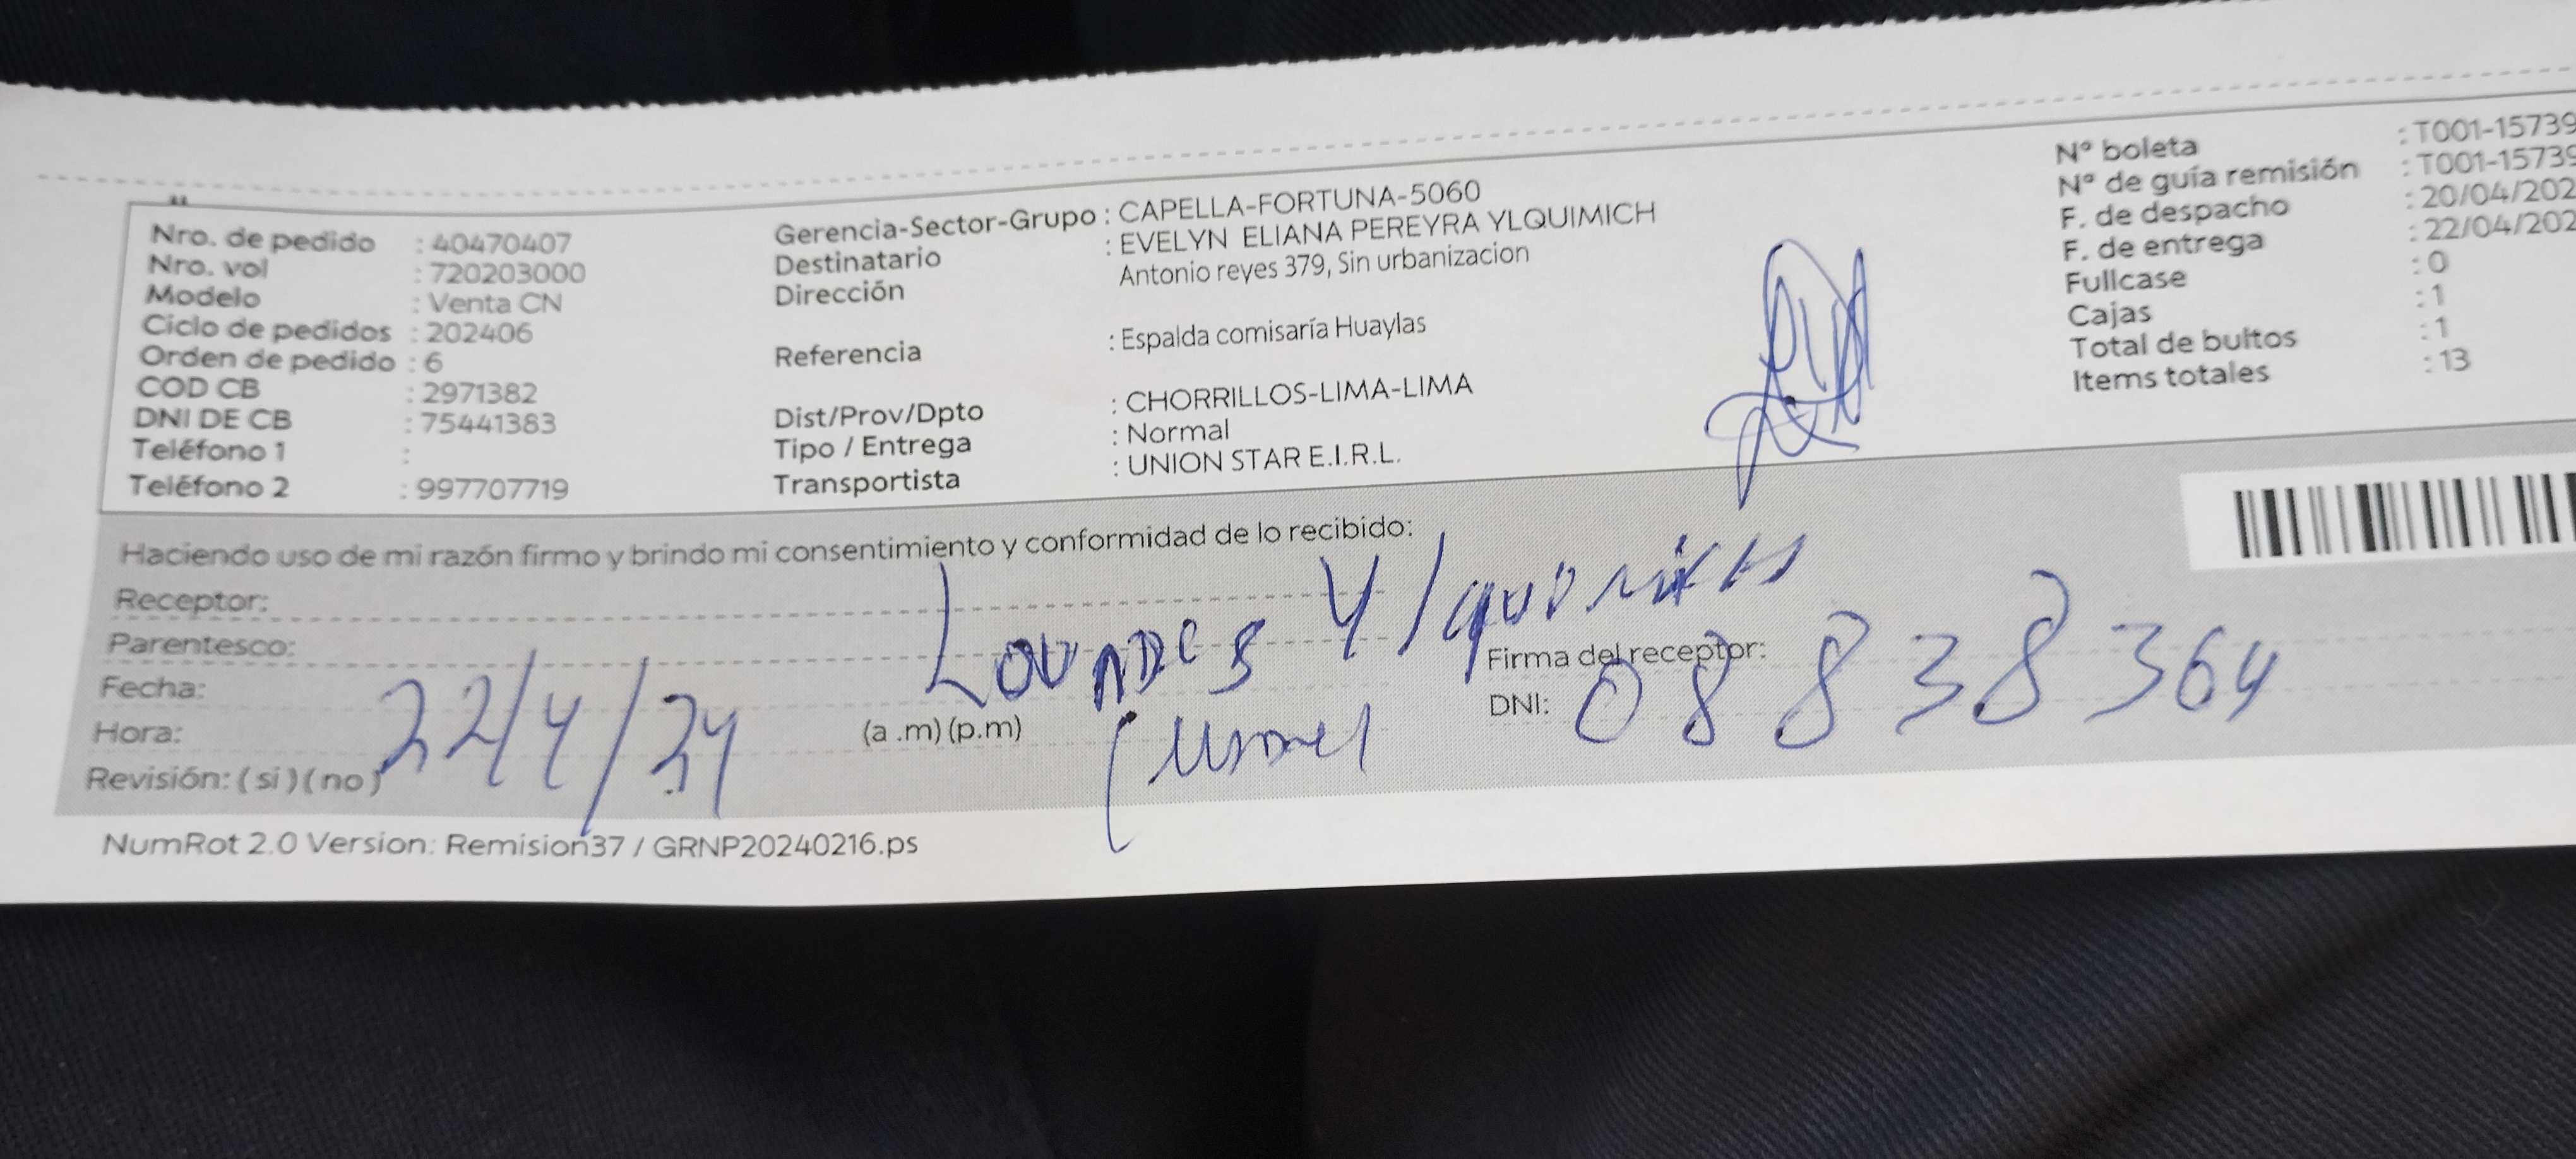 Nro. de pedido : 40470407
Nro. vol : 720203000
Modelo : Venta CN
Ciclo de pedidos : 202406
Orden de pedido : 6
COD CB : 2971382
DNI DE CB : 75441383
Teléfono 1 :
Teléfono 2 : 997707719
Gerencia-Sector-Grupo : CAPELLA-FORTUNA-5060
Destinatario : EVELYN ELIANA PEREYRA YLQUIMICH
Dirección Antonio reyes 379, Sin urbanizacion
Referencia : Espalda comisaría Huaylas
Dist/Prov/Dpto : CHORRILLOS-LIMA-LIMA
Tipo / Entrega : Normal
Transportista : UNION STAR E.I.R.L.
Nº boleta : T001-15739
Nº de guía remisión : T001-15739
F. de despacho : 20/04/202
F. de entrega : 22/04/202
Fullcase : 0
Cajas : 1
Total de bultos : 1
Items totales : 13
Haciendo uso de mi razón firmo y brindo mi consentimiento y conformidad de lo recibido:
Receptor:
Parentesco: Lourdes
Fecha: 22/4/24
Hora: (a .m) (p.m)
Revisión: ( si ) ( no )
Firma del receptor:
DNI: 08838364
NumRot 2.0 Version: Remision37 / GRNP20240216.ps